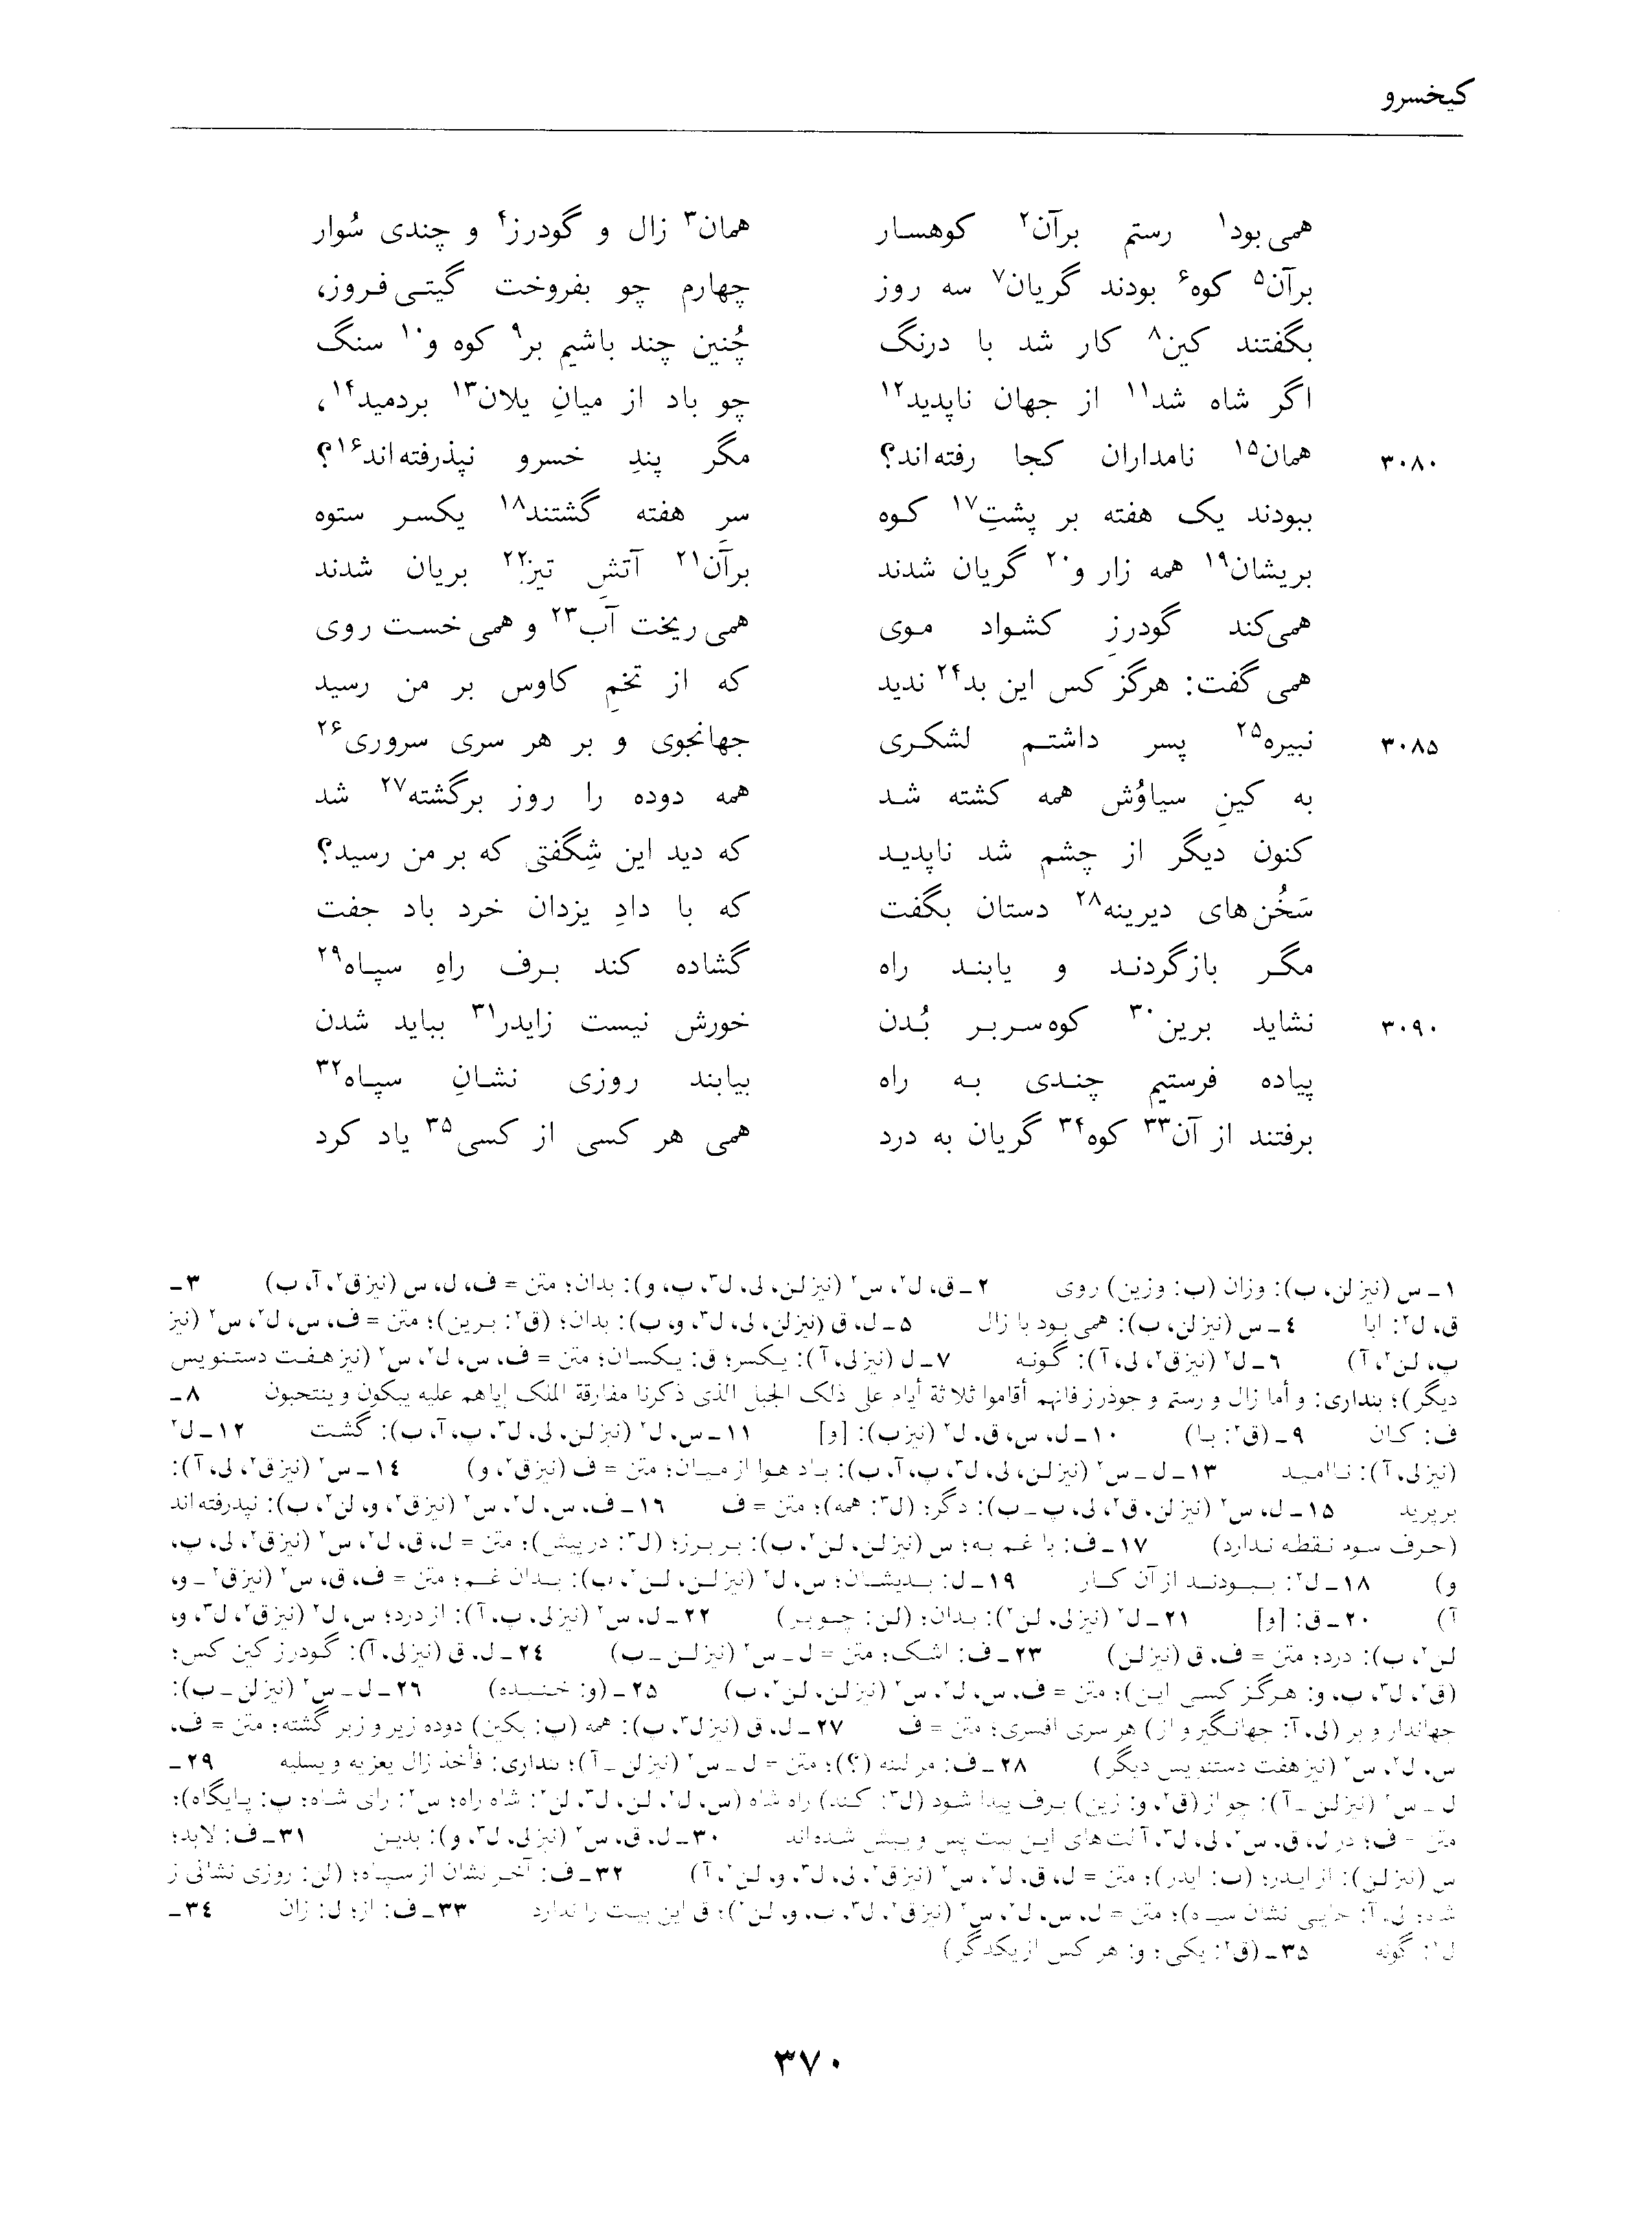 کیخسرو
همی بود۱ رستم برآن۲ کوهسار همان۳ زال و گودرز۴ و چندی سُوار
برآن۵ کوه۶ بودند گریان۷ سه روز چهارم چو بفروخت گیتی‌فروز،
بگفتند کین۸ کار شد با درنگ چُنین چند باشیم بر۹ کوه و۱۰ سنگ
اگر شاه شد۱۱ از جهان ناپدید۱۲ چو باد از میانِ یلان۱۳ بردمید۱۴،
۳۰۸۰ همان۱۵ نامداران کجا رفته‌اند؟ مگر پندِ خسرو نپذرفته‌اند۱۶؟
ببودند یک هفته بر پشتِ۱۷ کوه سرِ هفته گشتند۱۸ یکسر ستوه
بریشان۱۹ همه زار و۲۰ گریان شدند برآن۲۱ آتشِ تیز۲۲ بریان شدند
همی‌کند گودرزِ کشواد موی همی ریخت آب۲۳ و همی خست روی
همی گفت: هرگز کس این بد۲۴ ندید که از تخمِ کاوس بر من رسید
۳۰۸۵ نبیره۲۵ پسر داشتم لشکری جهانجوی و بر هر سری سروری۲۶
به کینِ سیاوُش همه کشته شد همه دوده را روز برگشته۲۷ شد
کنون دیگر از چشم شد ناپدید که دید این شِگفتی که بر من رسید؟
سَخُن‌های دیرینه۲۸ دستان بگفت که با دادِ یزدان خرد باد جفت
مگر بازگردند و یابند راه گشاده کند برف راهِ سپاه۲۹
۳۰۹۰ نشاید برین۳۰ کوه‌سربر بُدن خورش نیست زایدر۳۱ بباید شدن
پیاده فرستیم چندی به راه بیابند روزی نشانِ سپاه۳۲
برفتند از آن۳۳ کوه۳۴ گریان به درد همی هر کسی از کسی۳۵ یاد کرد
۱ـ س (نیز لن، ب): وزان (ب: وزین) روی ۲ـ ق، ل۲، س۲ (نیز لن، لی، ل۳، پ، و): بدان؛ متن = ف، ل، س (نیز ق۲، آ، ب) ۳ـ
ق، ل۲: ابا ۴ـ س (نیز لن، ب): همی بود با زال ۵ـ ل، ق (نیز لن، لی، ل۳، و، ب): بدان؛ (ق۲: برین)؛ متن = ف، س، ل۲، س۲ (نیز
پ، لن۲، آ) ۶ـ ل۲ (نیز ق۲، لی، آ): گونه ۷ـ ل (نیز لی، آ): یکسر؛ ق: یکسان؛ متن = ف، س، ل۲، س۲ (نیز هفت دستنویس
دیگر)؛ بنداری: و أما زال و رستم و جوذرز فانهم أقاموا ثلاثة أیام علی ذلک الجبل الذی ذکرنا مفارقة الملک إیاهم علیه یبکون و ینتحبون ۸ـ
ف: کان ۹ـ (ق۲: با) ۱۰ـ ل، س، ق، ل۲ (نیز ب): [و] ۱۱ـ س، ل۲ (نیز لن، لی، ل۳، پ، آ، ب): گشت ۱۲ـ ل۲
(نیز لی، آ): ناامید ۱۳ـ ل ـ س۲ (نیز لن، لی، ل۳، پ، آ، ب): باد هوا از میان؛ متن = ف (نیز ق۲، و) ۱۴ـ س۲ (نیز ق۲، لی، آ):
برپرید ۱۵ـ ل، س۲ (نیز لن، ق۲، لی، پ ـ ب): دگر؛ (ل۳: همه)؛ متن = ف ۱۶ـ ف، س، ل۲، س۲ (نیز ق۲، و، لن۲، ب): نپدرفته‌اند
(حرف سود نقطه ندارد) ۱۷ـ ف: با غم به؛ س (نیز لن، لن۲، ب): بر برز؛ (ل۳: در پیش)؛ متن = ل، ق، ل۲، س۲ (نیز ق۲، لی، پ،
و) ۱۸ـ ل۲: ببودند از آن کار ۱۹ـ ل: بدیشان؛ س، ل۲ (نیز لن، لن۲، ب): بدان غم؛ متن = ف، ق، س۲ (نیز ق۲ ـ و،
آ) ۲۰ـ ق: [و] ۲۱ـ ل۲ (نیز لی، لن۲): بدان؛ (لن: چو بر) ۲۲ـ ل، س۲ (نیز لی، پ، آ): از درد؛ س، ل۲ (نیز ق۲، ل۳، و،
لن۲، ب): درد؛ متن = ف، ق (نیز لن) ۲۳ـ ف: اشک؛ متن = ل ـ س۲ (نیز لن ـ ب) ۲۴ـ ل، ق (نیز لی، آ): گودرز کین کس؛
(ق۲، ل۳، پ، و: هرگز کسی این)؛ متن = ف، س، ل۲، س۲ (نیز لن، لن۲، ب) ۲۵ـ (و: خنیده) ۲۶ـ ل ـ س۲ (نیز لن ـ ب):
جهاندار و بر (لی، آ: جهانگیر و از) هر سری افسری؛ متن = ف ۲۷ـ ل، ق (نیز ل۳، ب): همه (پ: بکین) دوده زیر و زبر گشته؛ متن = ف،
س، ل۲، س۲ (نیز هفت دستنویس دیگر) ۲۸ـ ف: مر لینه (؟)؛ متن = ل ـ س۲ (نیز لن ـ آ)؛ بنداری: فأخذ زال یعزیه و یسلیه ۲۹ـ
ل ـ س۲ (نیز لن ـ آ): چو از (ق۲، و: زین) برف پیدا شود (ل۳: کند) راه شاه (س، ل۲، لن، ل۳، لن۲: شاه راه؛ س۲: رای شاه؛ ب: پایگاه)؛
متن = ف؛ در ل، ق، س۲، لی، ل۳، آ لت‌های این بیت پس و پیش شده‌اند ۳۰ـ ل، ق، س۲ (نیز لی، ل۳، و): بدین ۳۱ـ ف: لابد؛
س (نیز لن): از ایدر؛ (ب: ایدر)؛ متن = ل، ق، ل۲، س۲ (نیز ق۲، لی، ل۳، و، لن۲، آ) ۳۲ـ ف: آخر نشان از سپاه؛ (لن: روزی نشانی ز
شاه؛ لی، آ: جایی نشان سپاه)؛ متن = ل، س، ل۲، س۲ (نیز ق۲، ل۳، پ، و، لن۲)؛ ق این بیت را ندارد ۳۳ـ ف: از؛ ل: زان ۳۴ـ
ل۲: گونه ۳۵ـ (ق۲: یکی؛ و: هر کس از یکدگر)
۳۷۰